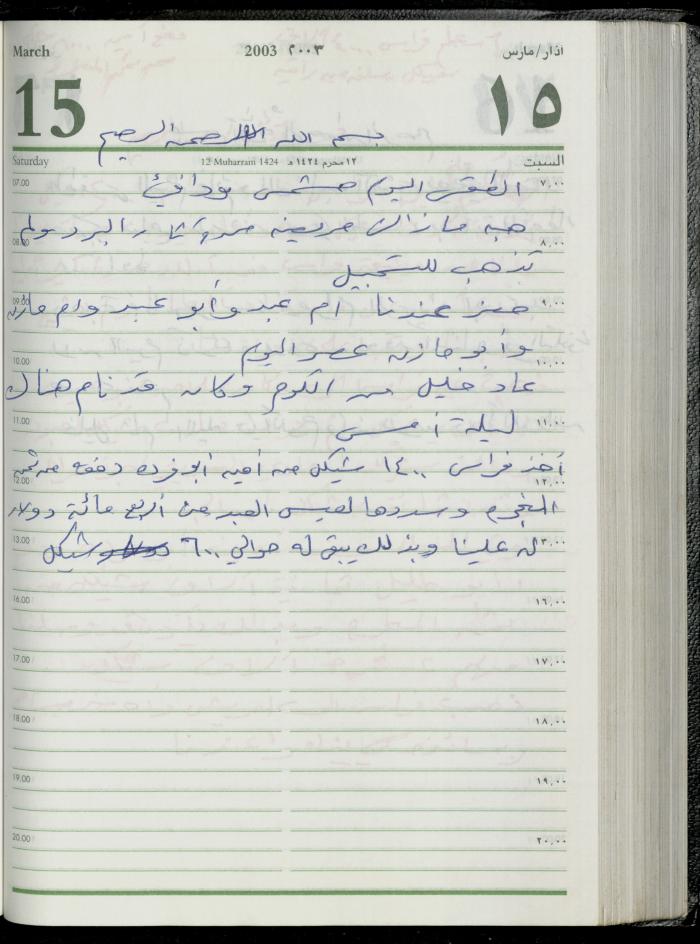 March 2003 ٢٠٠٣ اذار/مارس
15 ١٥
بسم الله الرحمن الرحيم
Saturday 12 Muharram 1424 ١٢ محرم ١٤٢٤ هـ السبت
07.00 الطقس اليوم مشمس ودافئ ٧,٠٠
هبه مازالت مريضه من آثار البرد ولم
08.00 ٨,٠٠
تذهب للتسجيل
09.00 حضر عندنا ام عبد وأبو عبد وام مازن ٩,٠٠
وأبو مازن عصر اليوم
10.00 ١٠,٠٠
عاد خليل من الكوم وكان قد نام هناك
11.00 ليلة أمس ١١,٠٠
أخذ فراس ١٤٠٠ شيكل من أمين ابو فرده دفعه من ثمن
12.00 ١٢,٠٠
الفحم وسددها لعيسى العبد من أربع مائة دولار
13.00 له علينا وبذلك يبقى له حوالي ٦٠٠ شيكل ١٣,٠٠
16.00 ١٦,٠٠
17.00 ١٧,٠٠
18.00 ١٨,٠٠
19.00 ١٩,٠٠
20.00 ٢٠,٠٠